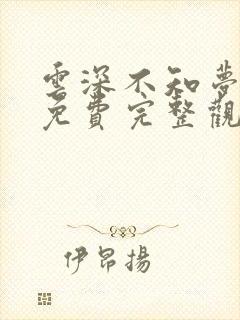 雲深不知夢
免費完整觀
伊昂揚